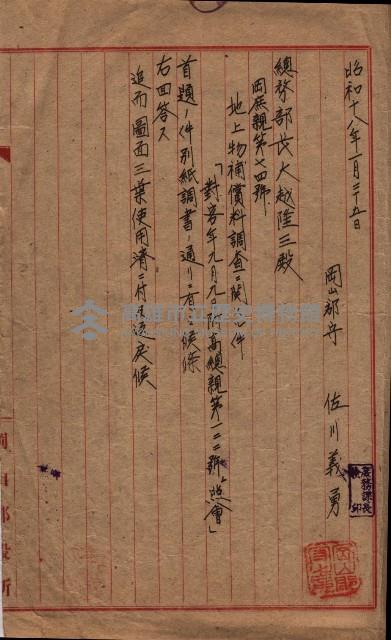 昭和十八年一月二十五日
岡山郡守 佐川義勇
庶務課長
總務部長大越隆三殿
岡庶親第七四號
地上物補償料調査ニ関スル件
「對客年九月九日附高總親第一二二號照會」
首題ノ件別紙調書ノ通リニ有之候條
右回答ス
追而圖面三葉使用濟ニ付返戾候
高雄市立歷史博物館
岡山郡役所